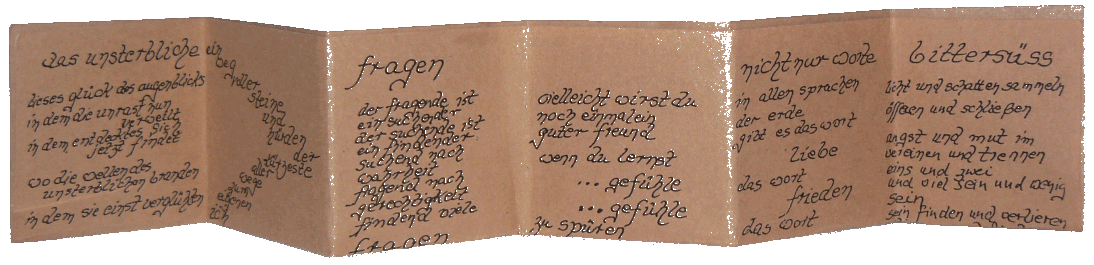 das unsterbliche
dieses glück des augenblicks
in dem die unrast nun
verweilt
in dem entdecktes sich
jetzt findet
wo die wellen des
unsterblichen branden
in dem sie einst verglühten
ein
weg
voller
steine
und
hürden
der
kürzeste
aller
wege
zum
eigenen
ich
fragen
der fragende ist
ein suchender
der suchende ist
ein findender
suchend nach
wahrheit
fragend nach
gerechtigkeit
findend viele
fragen
vielleicht wirst du
noch einmal ein
guter freund
wenn du lernst
... gefühle
... gefühle
zu spüren
nicht nur worte
in allen sprachen
der erde
gibt es das wort
liebe
das wort
frieden
das wort
bittersüss
licht und schatten sammeln
öffnen und schließen
angst und mut im
vereinen und trennen
eins und zwei
und viel sein und wenig
sein
sein finden und verlieren